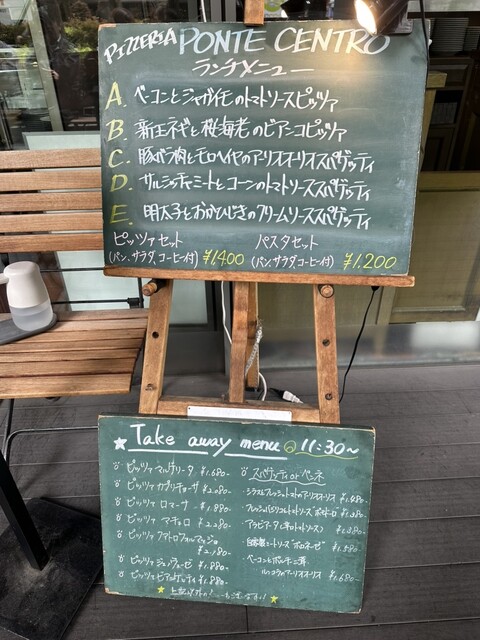 PIZZERIA PONTE CENTRO
ランチメニュー
A. ベーコンとジャガイモのトマトソースピッツァ
B. 新玉ネギと桜海老のビアンコピッツァ
C. 豚バラ肉とモロヘイヤのアーリオオーリオスパゲッティ
D. サルシッチャミートとコーンのトマトソーススパゲッティ
E. 明太子とおかひじきのクリームソーススパゲッティ
ピッツァセット パスタセット
(パン、サラダ、コーヒー付) ¥1,400 (パン、サラダ、コーヒー付) ¥1,200
★ Take away menu 11:30~
ピッツァ マルゲリータ ¥1.680-
ピッツァ カプリチョーザ ¥2.080-
ピッツァ ロマーナ ¥1.880-
ピッツァ マチェロ ¥2.280-
ピッツァ クアトロフォルマッジョ
¥2.180-
ピッツァ ジェノヴェーゼ ¥1.880-
ピッツァ ビアンケッティ ¥1.880-
スパゲッティ or ペンネ
シラスとフレッシュトマトのアーリオオーリオ ¥1.480-
¥1.380-
アラビアータ(辛めトマトソース) ¥1.280-
自家製ミートソース "ボロネーゼ" ¥1.580-
ベーコンとポルチーニ茸
ルッコラのアーリオオーリオ ¥1.680-